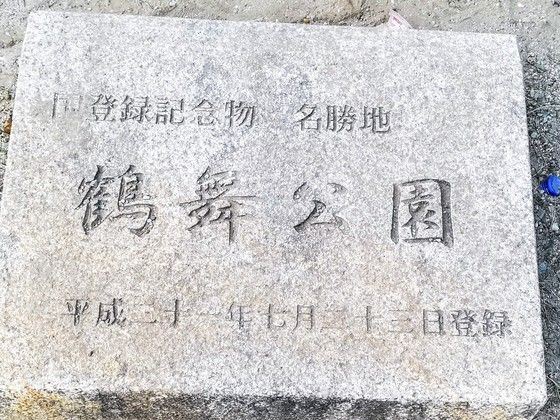 国登録記念物 名勝地
鶴舞公園
平成二十一年七月二十三日登録